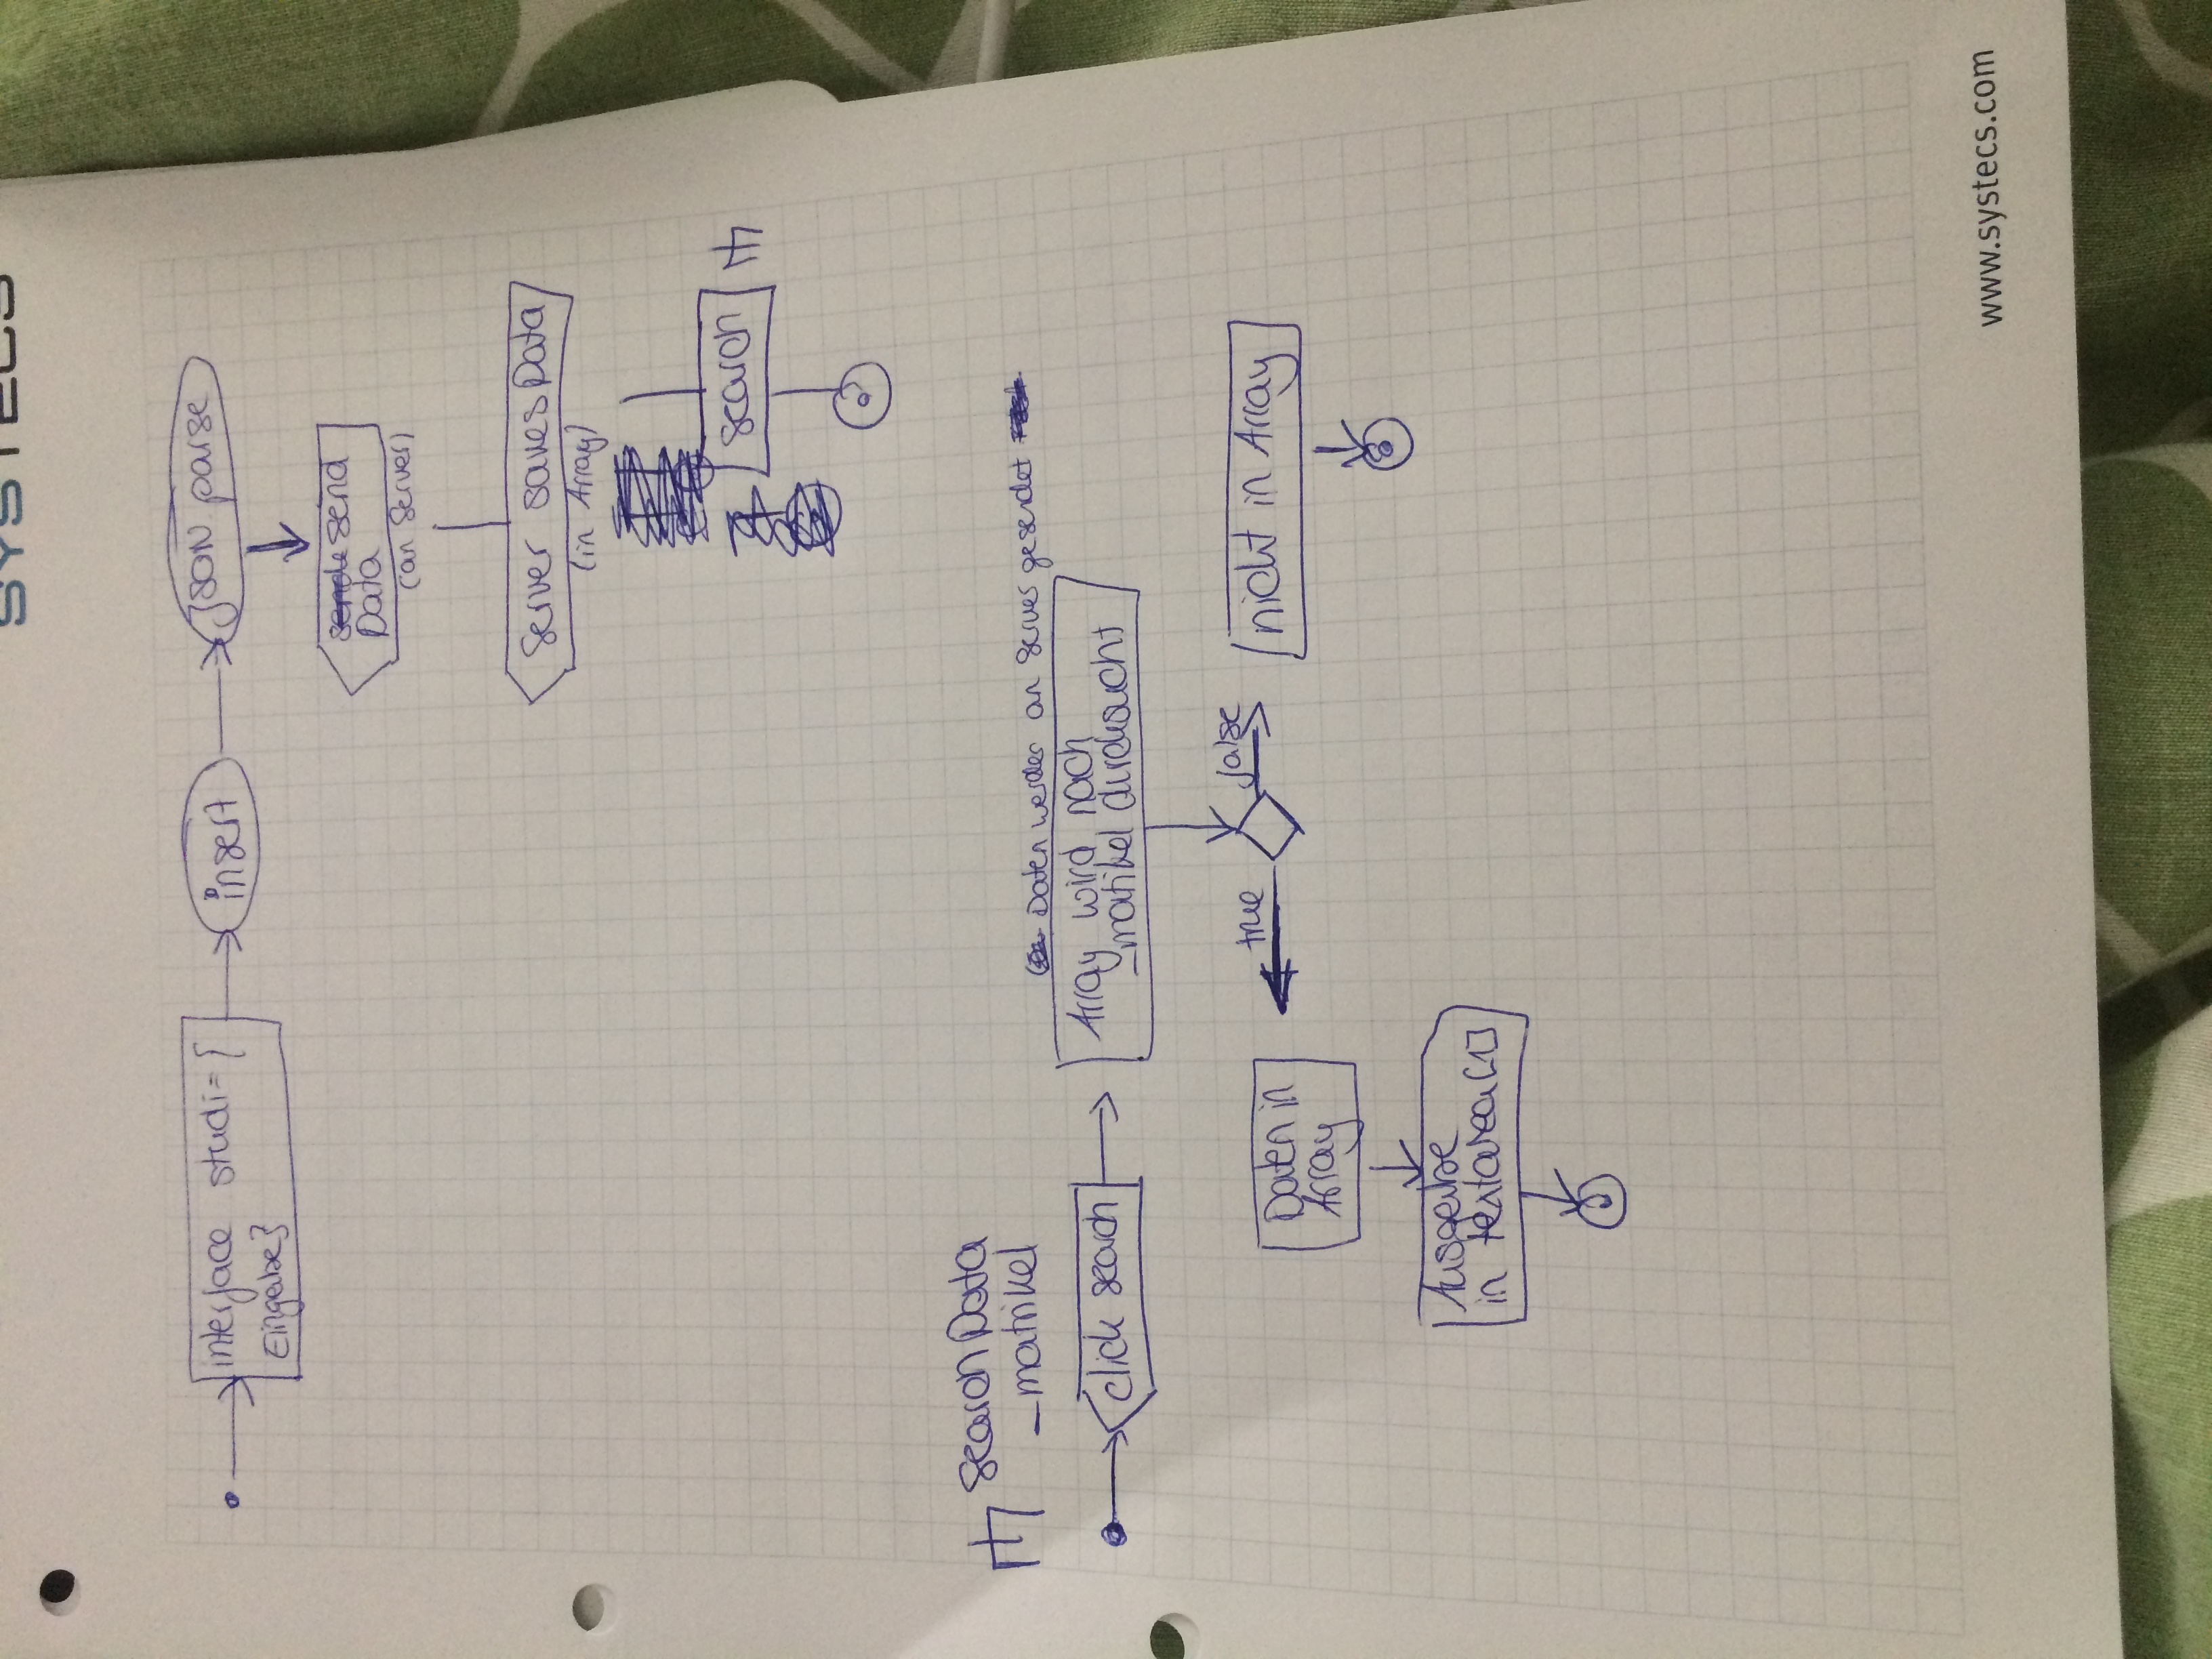 SYSTECS
interface studi={
Eingabe}
insert
JSON parse
send
Data
(an Server)
Server saves Data
(in Array)
search
search Data
_matrikel
Daten werden an Server gesendet
click search
Array wird nach
_matikel durchsucht
true
false
Daten in
Array
nicht in Array
Ausgabe
in textarea[1]
www.systecs.com